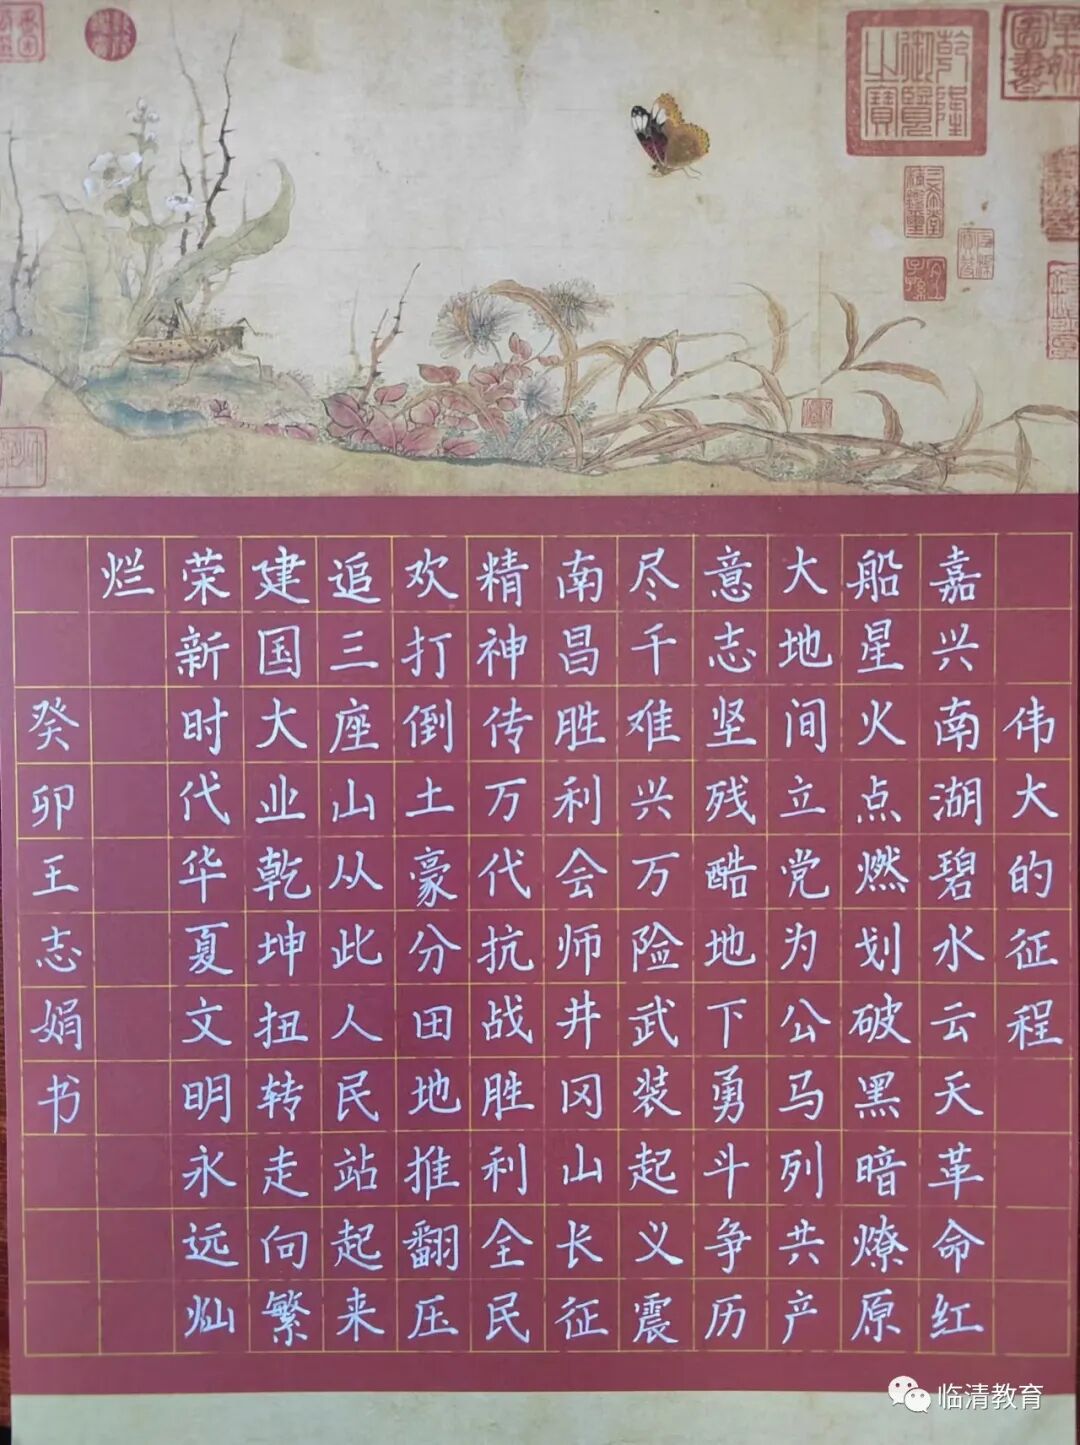 乾隆御览之寶
三希堂精鑑璽
宜子孫
伟大的征程
嘉兴南湖碧水云天革命红
船星火点燃划破黑暗燎原
大地间立党为公马列共产
意志坚残酷地下勇斗争历
尽千难兴万险武装起义震
南昌胜利会师井冈山长征
精神传万代抗战胜利全民
欢打倒土豪分田地推翻压
追三座山从此人民站起来
建国大业乾坤扭转走向繁
荣新时代华夏文明永远灿
烂
癸卯王志娟书
临清教育